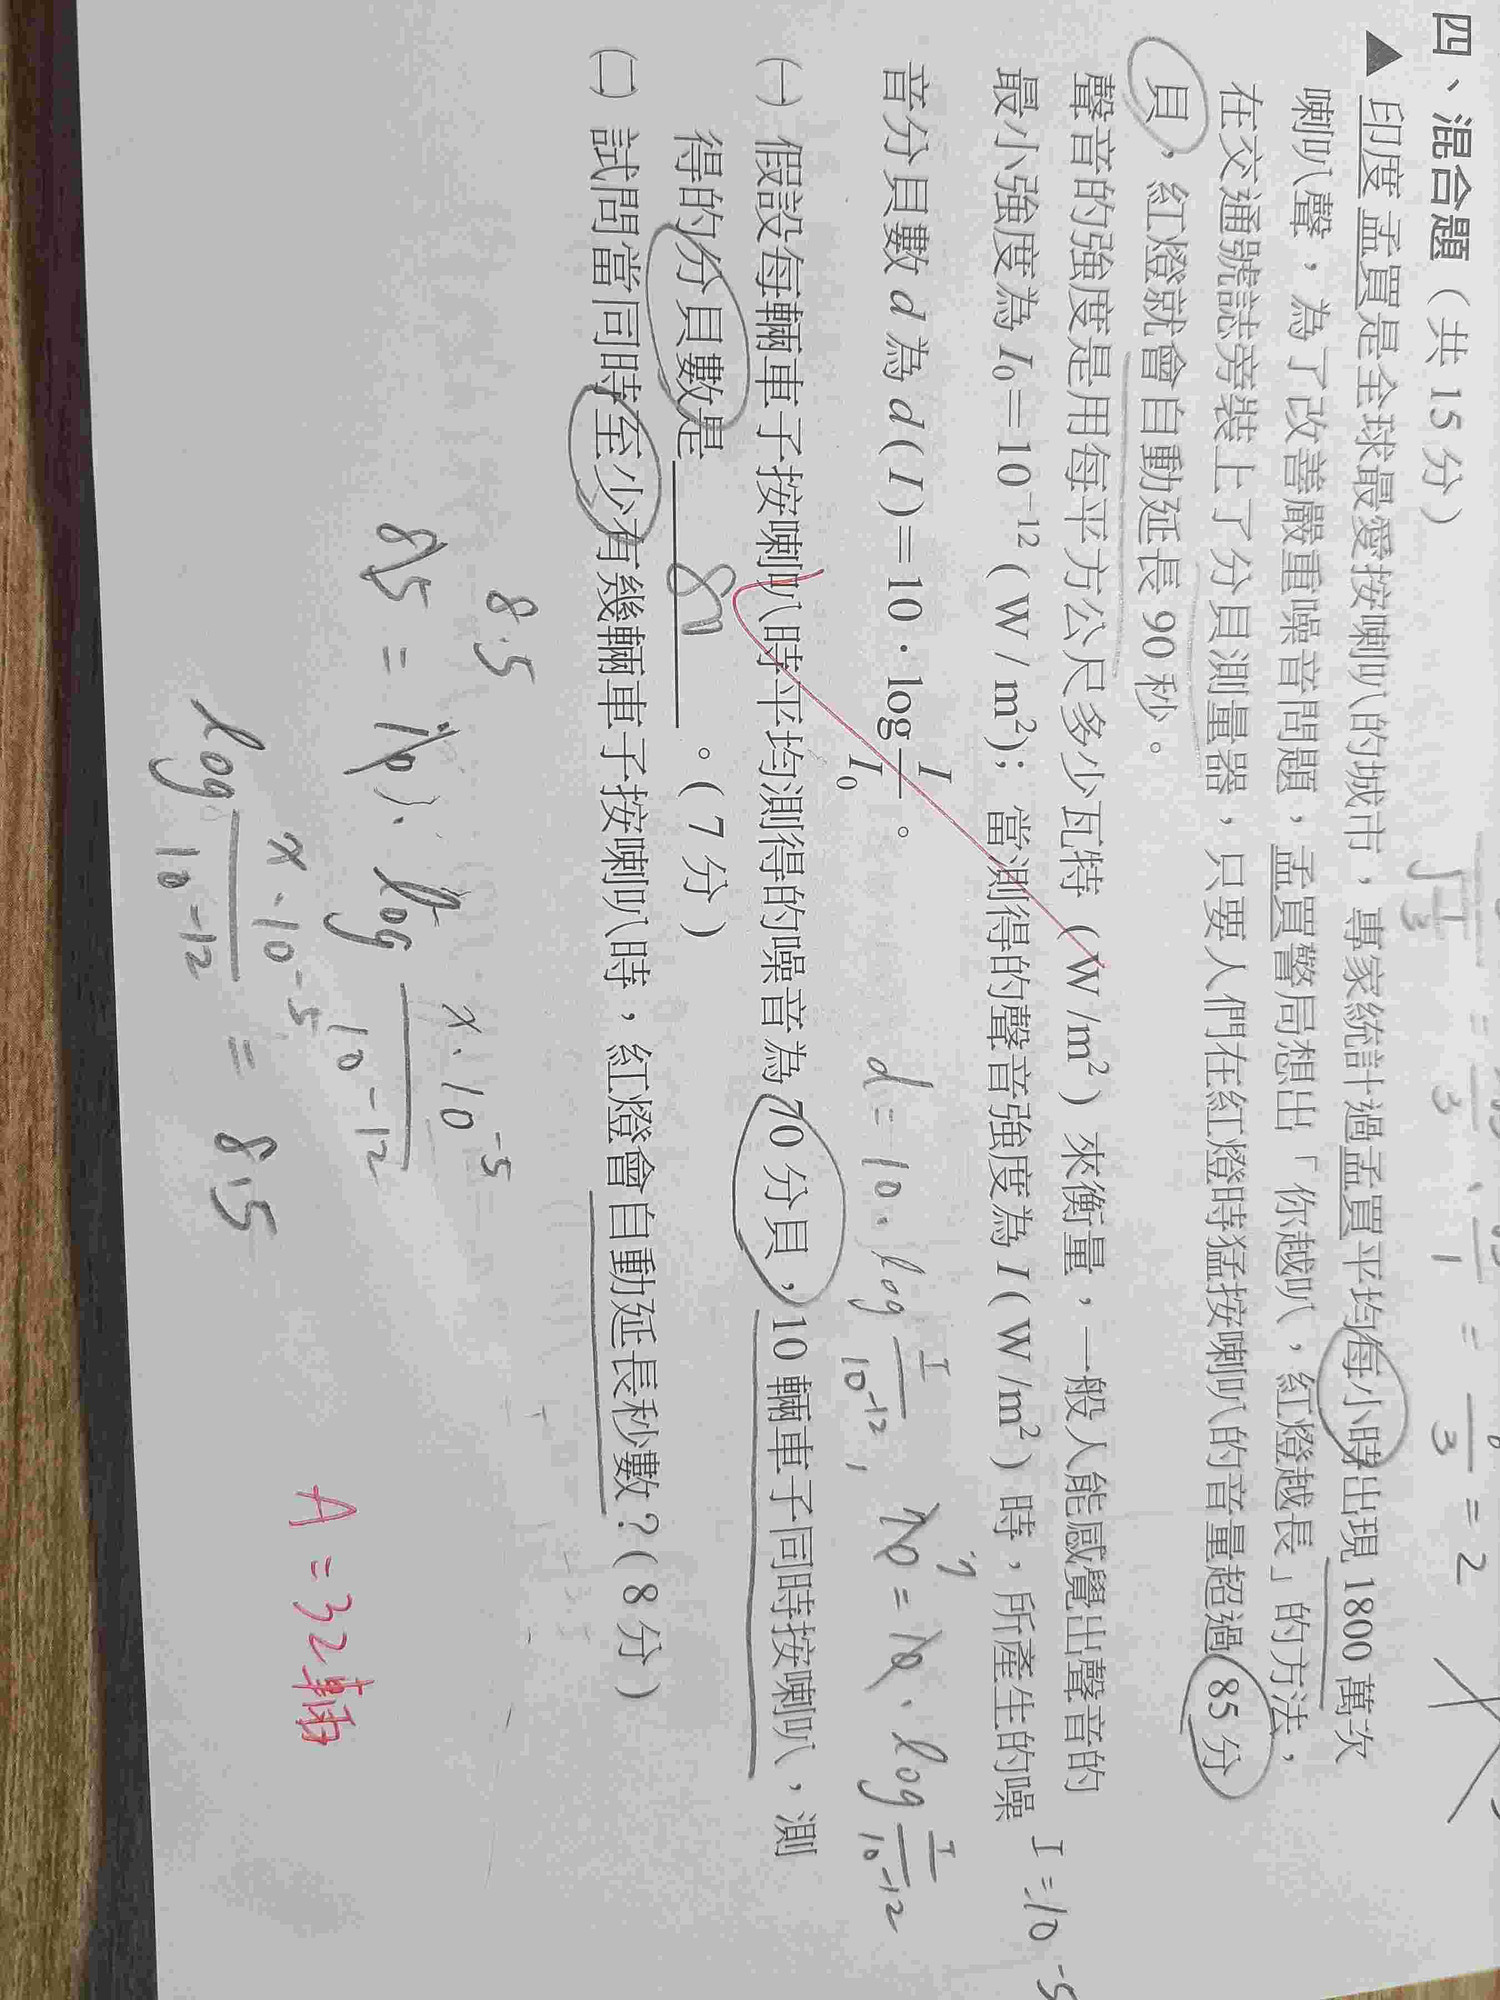 四、混合題（共 15 分）
▲ 印度 孟買是全球最愛按喇叭的城市，專家統計過孟買平均每小時出現 1800 萬次
喇叭聲，為了改善嚴重噪音問題，孟買警局想出「你越叭，紅燈越長」的方法，
在交通號誌旁裝上了分貝測量器，只要人們在紅燈時猛按喇叭的音量超過 85 分
貝，紅燈就會自動延長 90 秒。
聲音的強度是用每平方公尺多少瓦特（W/m²）來衡量，一般人能感覺出聲音的
最小強度為 I₀＝10⁻¹²（W/m²）；當測得的聲音強度為 I（W/m²）時，所產生的噪
I = 10⁻⁵
音分貝數 d 為 d（I）＝10．log I/I₀。
d = 10．log I/10⁻¹²，
70 = 10．log I/10⁻¹²
7
㈠ 假設每輛車子按喇叭時平均測得的噪音為 70 分貝，10 輛車子同時按喇叭，測
得的分貝數是 80 。（7 分）
㈡ 試問當同時至少有幾輛車子按喇叭時，紅燈會自動延長秒數？（8 分）
8.5
85 = 10．log x．10⁻⁵/10⁻¹²
log x．10⁻⁵/10⁻¹² = 8.5
A = 32輛